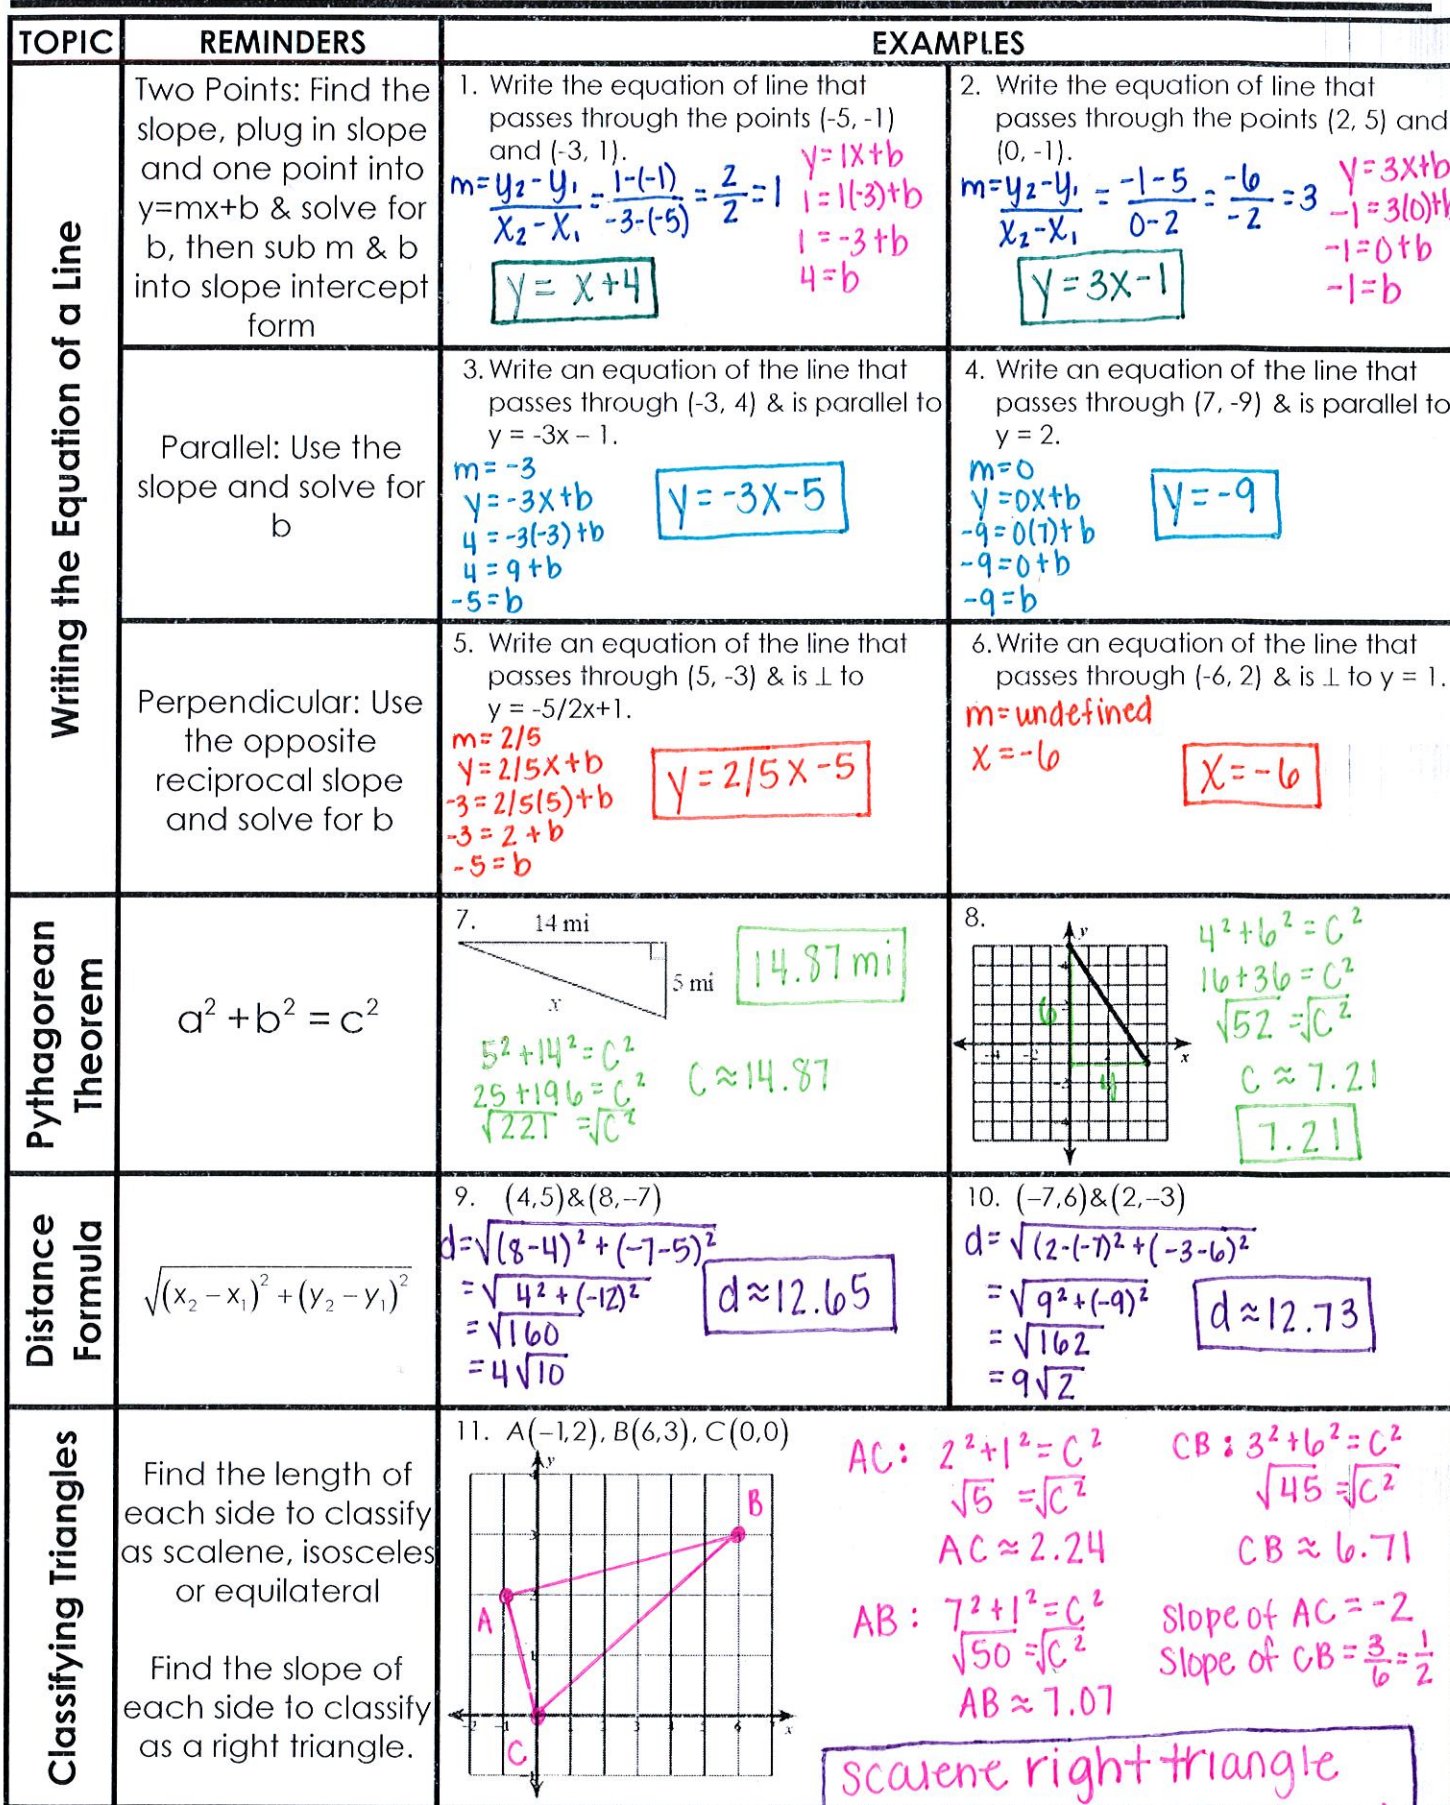 TOPIC
REMINDERS
EXAMPLES
Writing the Equation of a Line
Two Points: Find the
slope, plug in slope
and one point into
y=mx+b & solve for
b, then sub m & b
into slope intercept
form
1. Write the equation of line that
passes through the points (-5, -1)
and (-3, 1).
m = y₂-y₁/x₂-x₁ = 1-(-1)/-3-(-5) = 2/2 = 1
y=1x+b
1=1(-3)+b
1=-3+b
4=b
y=x+4
2. Write the equation of line that
passes through the points (2, 5) and
(0, -1).
m = y₂-y₁/x₂-x₁ = -1-5/0-2 = -6/-2 = 3
y=3x+b
-1=3(0)+b
-1=0+b
-1=b
y=3x-1
Parallel: Use the
slope and solve for
b
3. Write an equation of the line that
passes through (-3, 4) & is parallel to
y = -3x – 1.
m=-3
y=-3x+b
4=-3(-3)+b
4=9+b
-5=b
y=-3x-5
4. Write an equation of the line that
passes through (7, -9) & is parallel to
y = 2.
m=0
y=0x+b
-9=0(7)+b
-9=0+b
-9=b
y=-9
Perpendicular: Use
the opposite
reciprocal slope
and solve for b
5. Write an equation of the line that
passes through (5, -3) & is ⊥ to
y = -5/2x+1.
m=2/5
y=2/5x+b
-3=2/5(5)+b
-3=2+b
-5=b
y=2/5x-5
6. Write an equation of the line that
passes through (-6, 2) & is ⊥ to y = 1.
m=undefined
x=-6
x=-6
Pythagorean
Theorem
a² + b² = c²
7.
14 mi
5 mi
x
14.87 mi
5²+14²=c²
25+196=c²
√221=√c²
c≈14.87
8.
y
x
-4 -2
6
4
4²+6²=c²
16+36=c²
√52=√c²
c≈7.21
7.21
Distance
Formula
√(x₂ – x₁)² + (y₂ – y₁)²
9. (4,5)&(8,–7)
d=√(8-4)²+(-7-5)²
=√4²+(-12)²
=√160
=4√10
d≈12.65
10. (–7,6)&(2,–3)
d=√(2-(-7)²+(-3-6)²
=√9²+(-9)²
=√162
=9√2
d≈12.73
Classifying Triangles
Find the length of
each side to classify
as scalene, isosceles
or equilateral
Find the slope of
each side to classify
as a right triangle.
11. A(–1,2), B(6,3), C(0,0)
y
B
A
C
x
AC: 2²+1²=c²
√5=√c²
AC≈2.24
CB: 3²+6²=c²
√45=√c²
CB≈6.71
AB: 7²+1²=c²
√50=√c²
AB≈7.07
Slope of AC=-2
Slope of CB=3/6=1/2
scalene right triangle